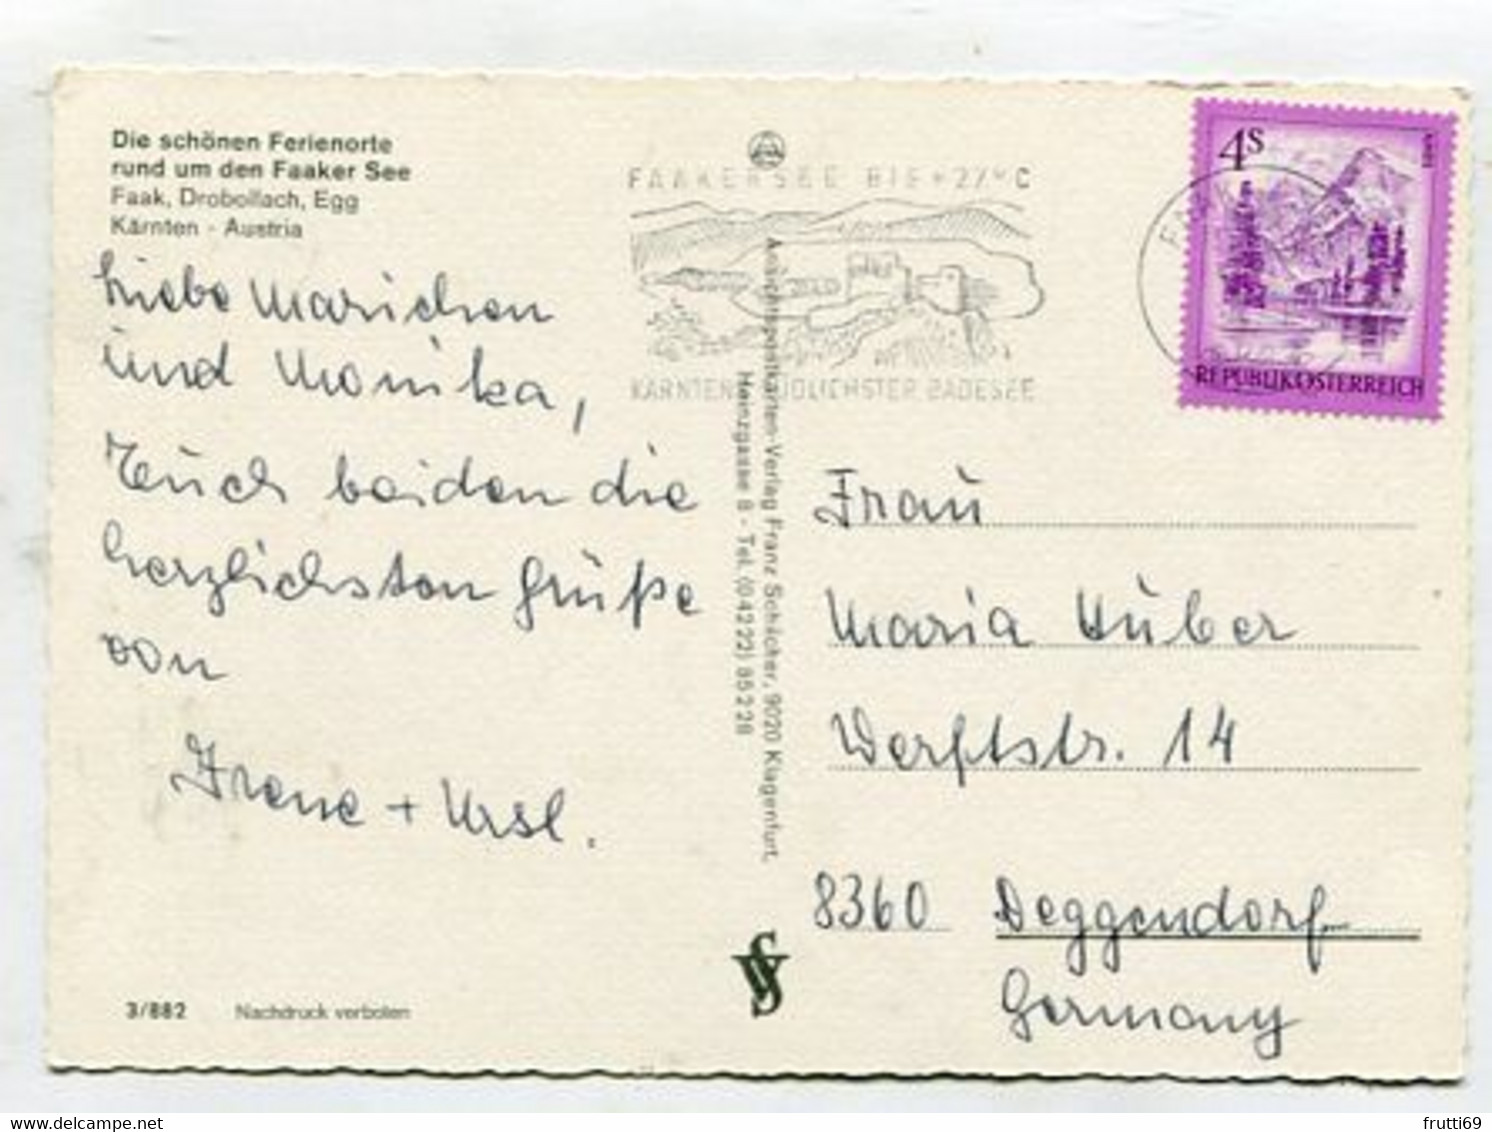 Die schönen Ferienorte
rund um den Faaker See
Faak, Drobollach, Egg
Kärnten - Austria
Liebe Marichen
und Monika,
Euch beiden die
herzlichsten Grüße
von
Irene + Ursl.
3/882 Nachdruck verboten
FAAKER SEE BIS +27°C
KÄRNTENS SÜDLICHSTER BADESEE
Ansichtspostkarten-Verlag Franz Schilcher, 9020 Klagenfurt,
Heinzgasse 8 - Tel. (04222) 85228
4S
REPUBLIK ÖSTERREICH
Frau
Maria Huber
Werftstr. 14
8360 Deggendorf
Germany
frutti69